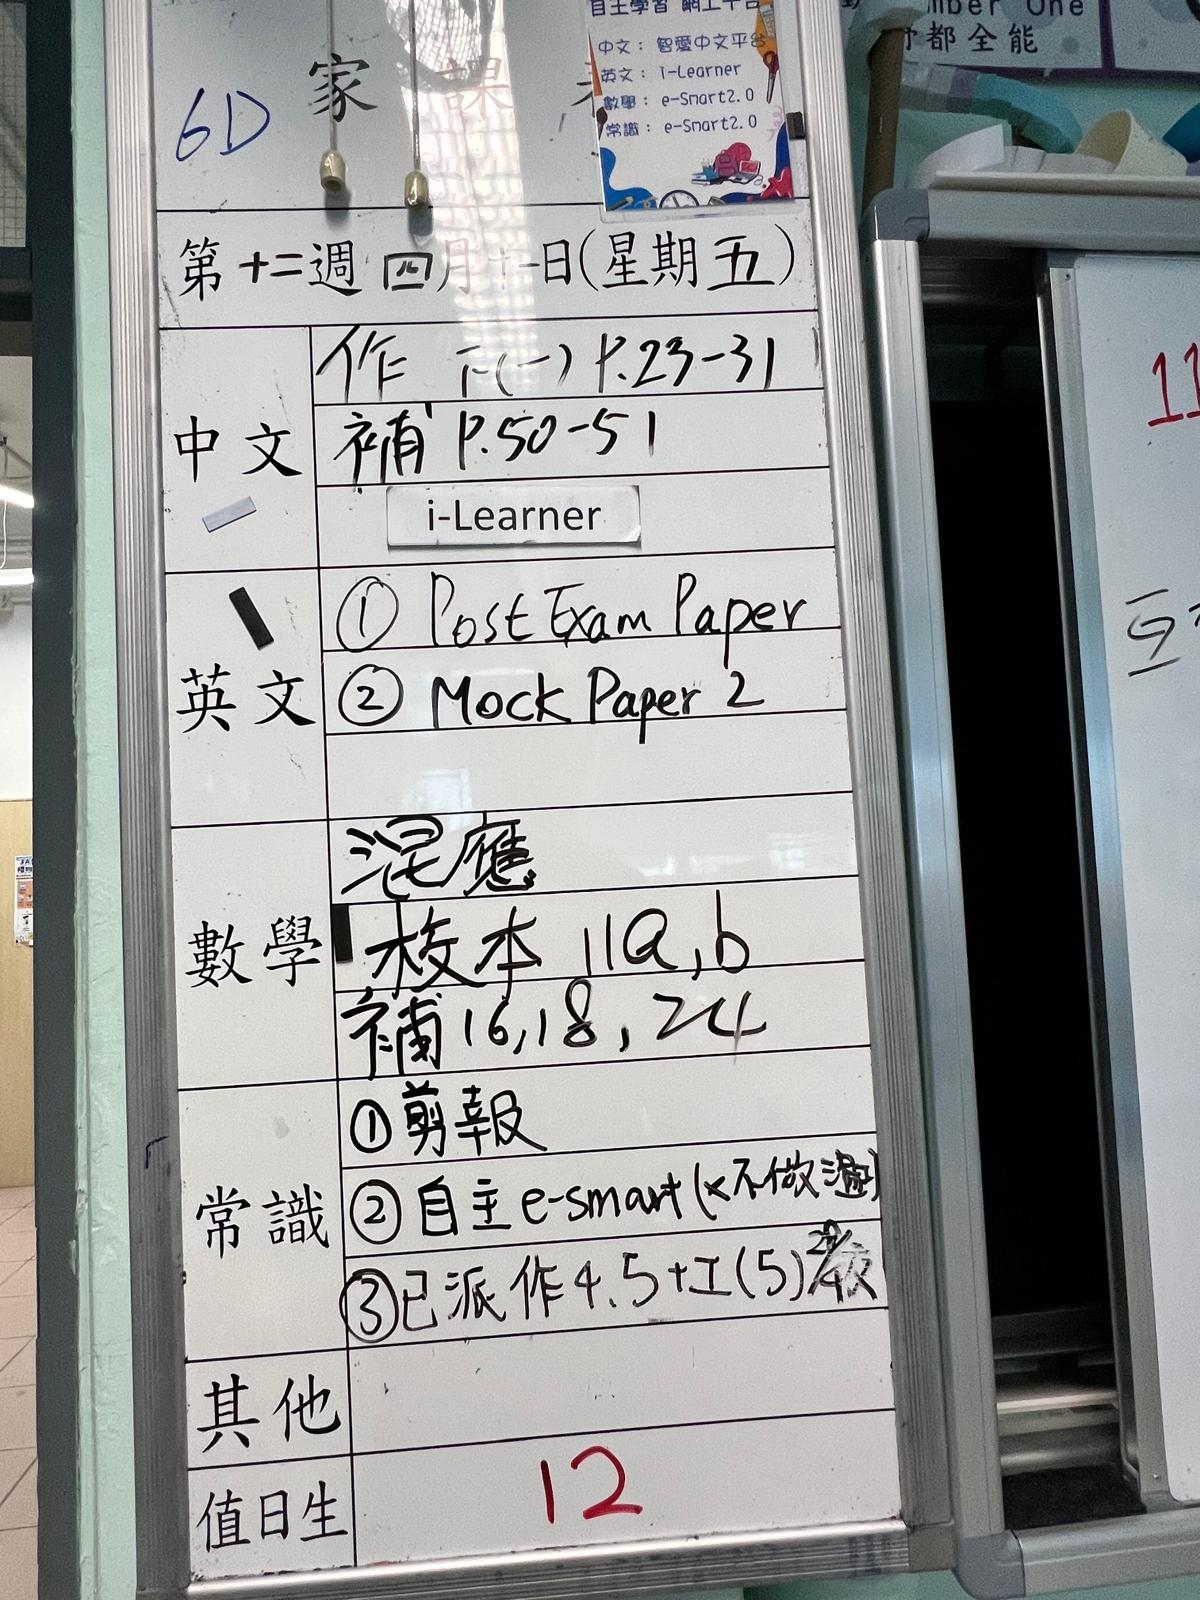 自主學習 網上平台
中文： 智愛中文平台
英文： i-Learner
數學： e-Smart2.0
常識： e-Smart2.0
Number One
都全能
6D
家 課
第十二週 四月十一日(星期五)
中文
作 下(一) P.23-31
補 P.50-51
i-Learner
英文
① Post Exam Paper
② Mock Paper 2
數學
混應
校本 11a,b
補 16,18, 24
常識
① 剪報
② 自主 e-smart (x不做
③ 已派 作4.5+工(5)
其他
值日生
12
11